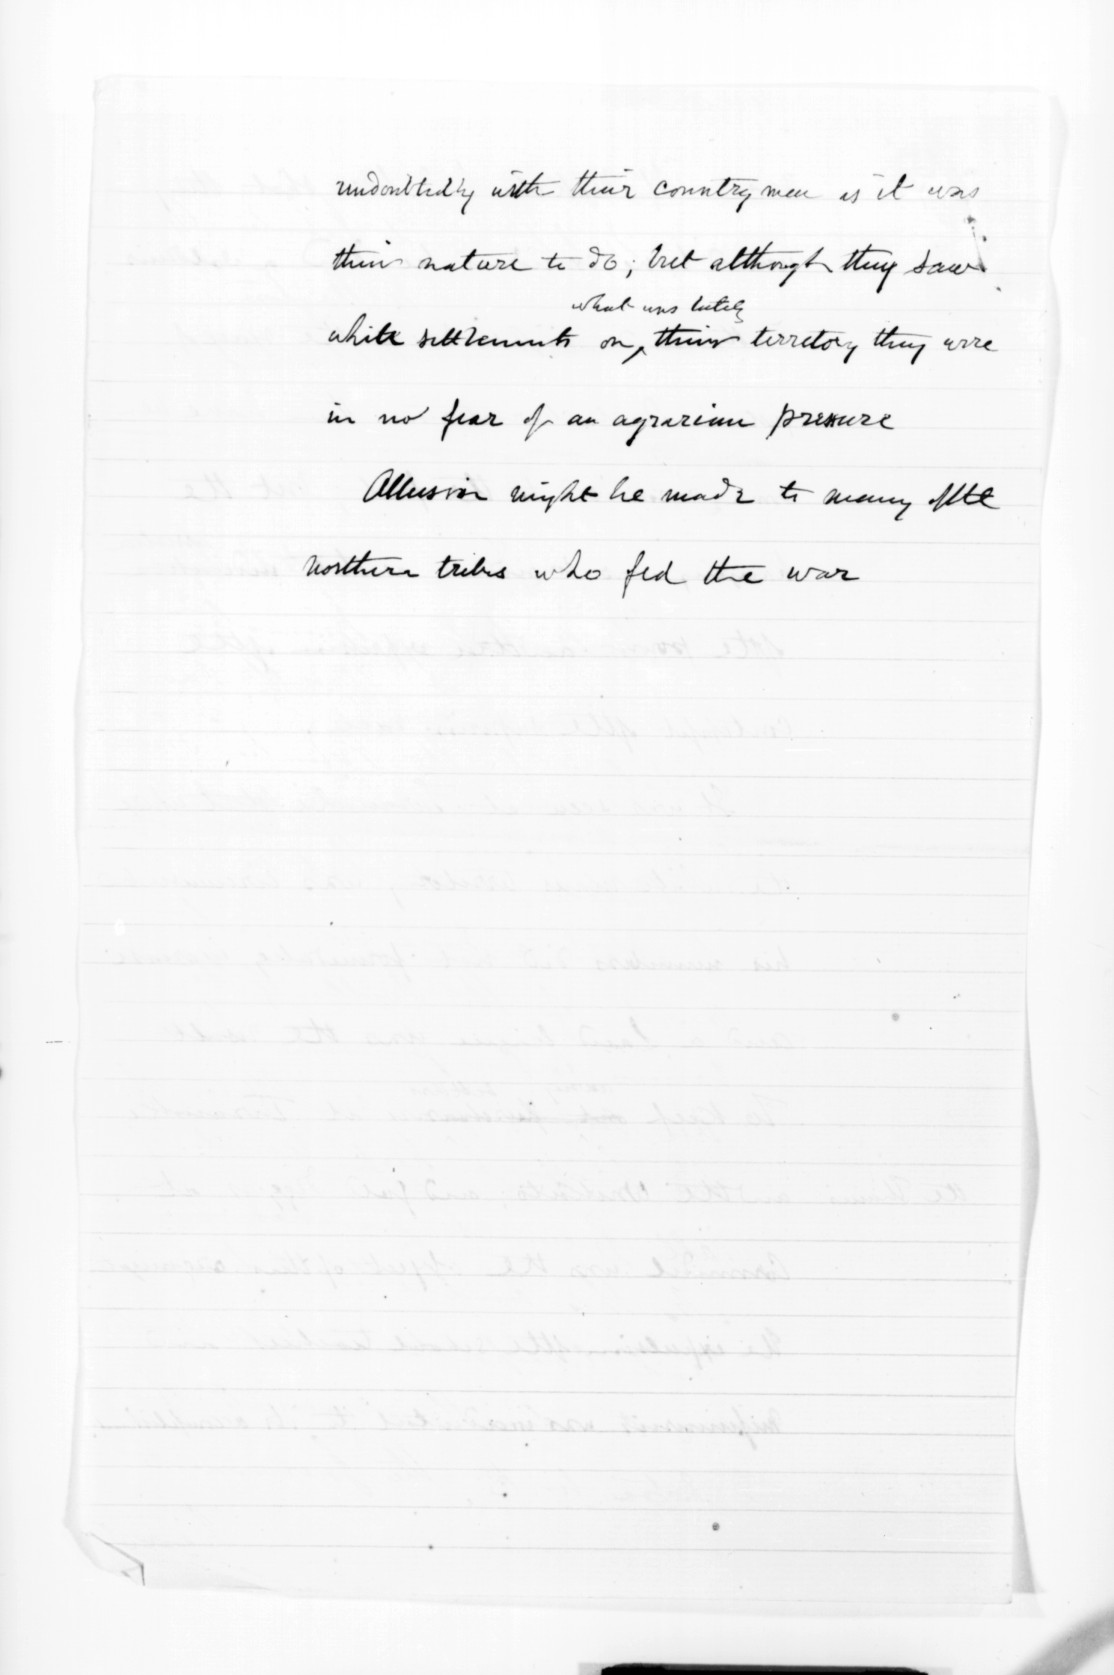 undoubtedly with their countrymen as it was
their nature to do; but although they saw
what was lately
white settlements on their territory they were
in no fear of an agrarian pressure
Allusion might be made to many of the
northern tribes who fed the war